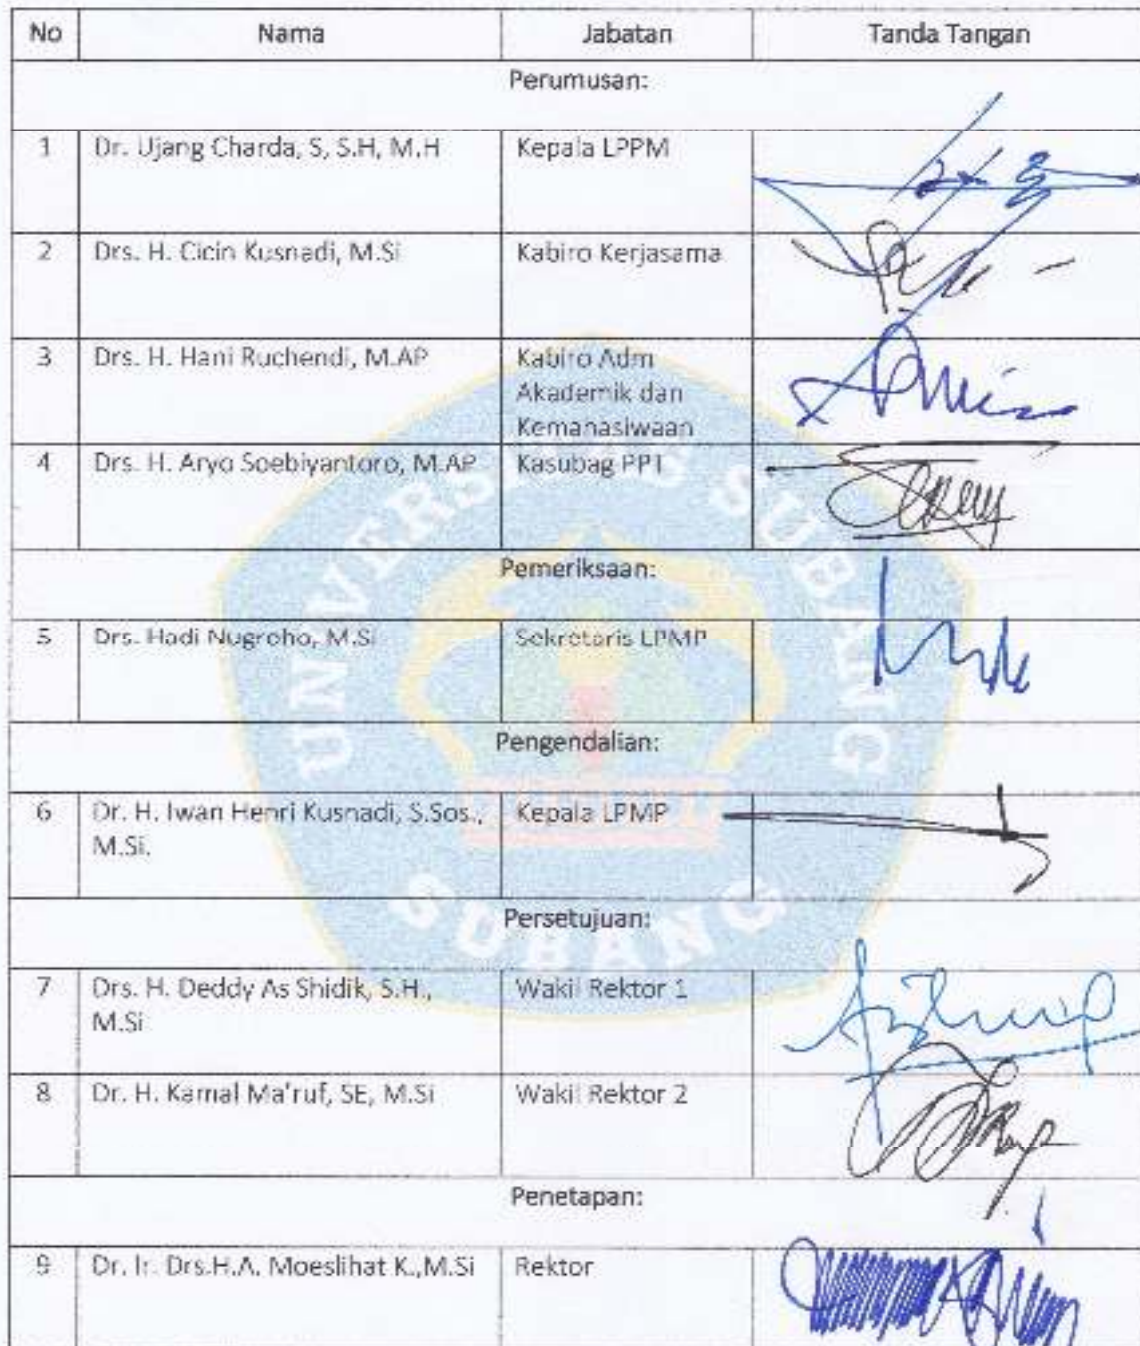 No Nama Jabatan Tanda Tangan
Perumusan:
1 Dr. Ujang Charda, S, S.H, M.H Kepala LPPM
2 Drs. H. Cicin Kusnadi, M.Si Kabiro Kerjasama
3 Drs. H. Hani Ruchendi, M.AP Kabiro Adm
Akademik dan
Kemanasiwaan
4 Drs. H. Aryo Soebiyantoro, M.AP Kasubag PPT
Pemeriksaan:
5 Drs. Hadi Nugroho, M.Si Sekretaris LPMP
Pengendalian:
6 Dr. H. Iwan Henri Kusnadi, S.Sos., Kepala LPMP
M.Si.
Persetujuan:
7 Drs. H. Deddy As Shidik, S.H., Wakil Rektor 1
M.Si
8 Dr. H. Kamal Ma'ruf, SE, M.Si Wakil Rektor 2
Penetapan:
9 Dr. Ir. Drs.H.A. Moeslihat K.,M.Si Rektor
UNIVERSITAS SUBANG
SUBANG